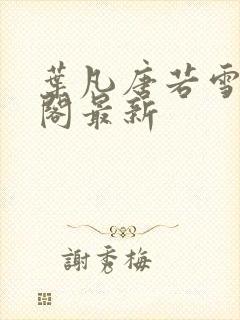 葉凡唐若雪
閣最新
謝秀梅